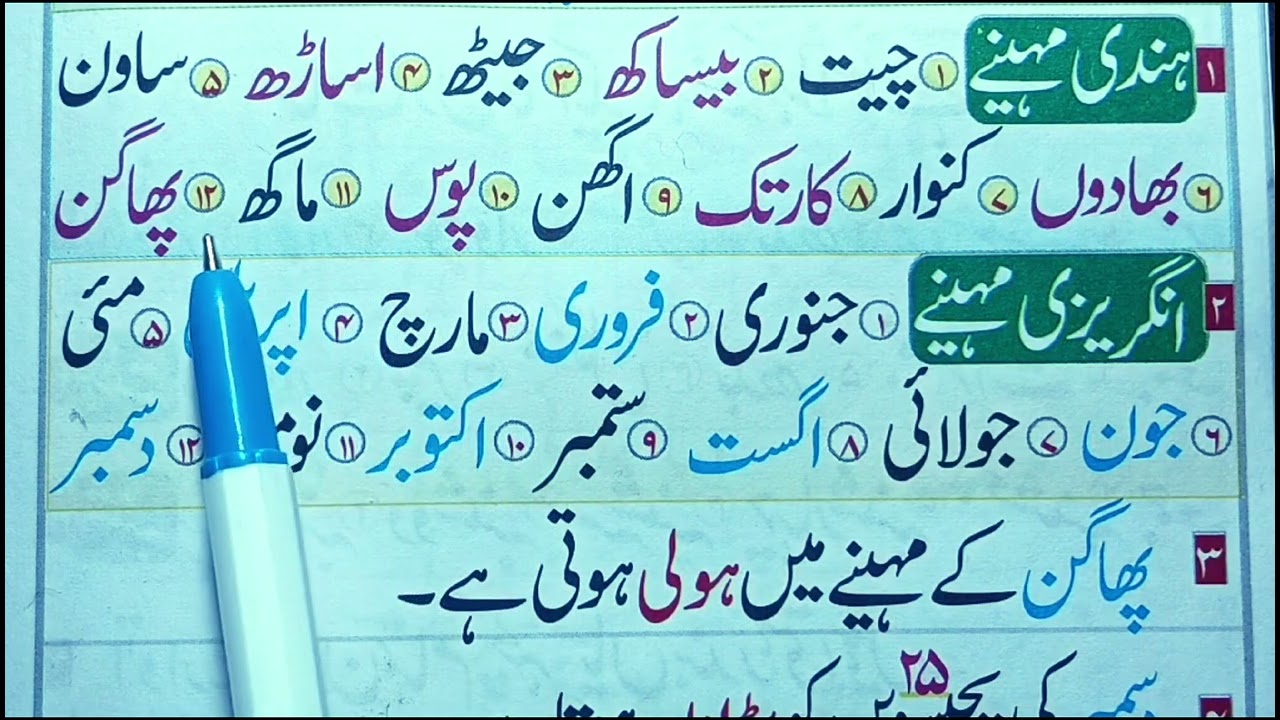 ۱ ہندی مہینے ۱ چیت ۲ بیساکھ ۳ جیٹھ ۴ اساڑھ ۵ ساون
۶ بھادوں ۷ کنوار ۸ کارتک ۹ اگھن ۱۰ پوس ۱۱ ماگھ ۱۲ پھاگن
۲ انگریزی مہینے ۱ جنوری ۲ فروری ۳ مارچ ۴ ۵ مئی
۶ جون ۷ جولائی ۸ اگست ۹ ستمبر ۱۰ اکتوبر ۱۱ ۱۲ دسمبر
۳ پھاگن کے مہینے میں ہولی ہوتی ہے۔
دسمبر کی ۲۵